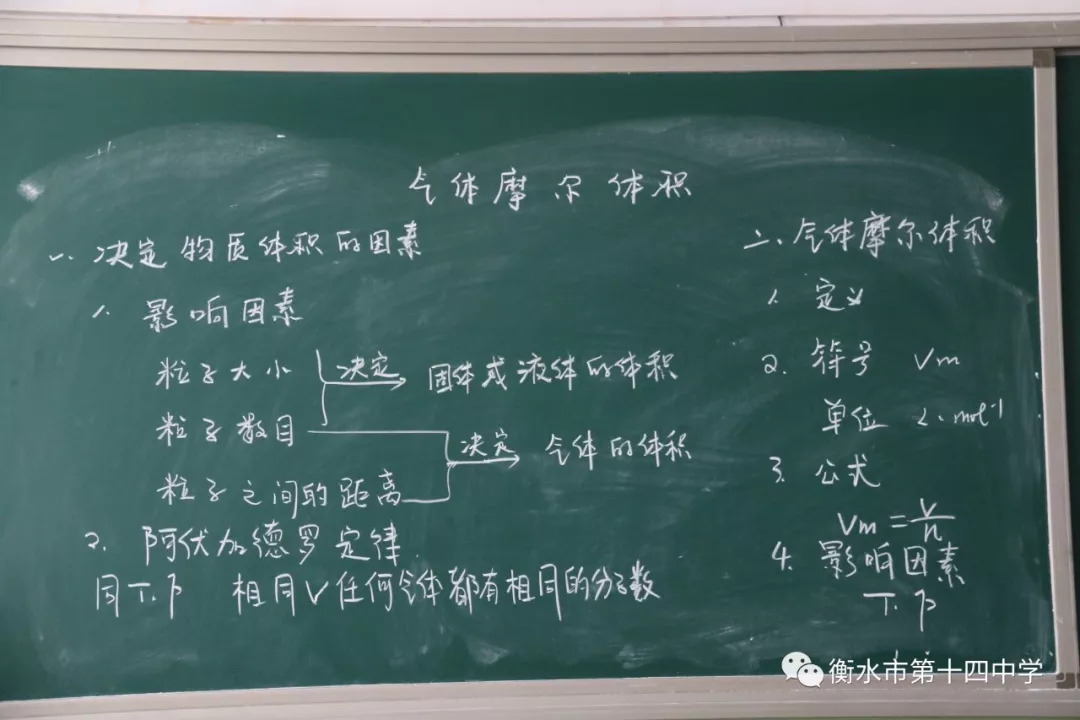 气体摩尔体积
一、决定物质体积的因素
1、影响因素
粒子大小 决定 固体或液体的体积
粒子数目
决定 气体的体积
粒子之间的距离
2、阿伏加德罗定律
同T、P 相同V任何气体都有相同的分子数
二、气体摩尔体积
1、定义
2、符号 Vm
单位 L·mol⁻¹
3、公式
Vm=V/n
4、影响因素
T、P
衡水市第十四中学